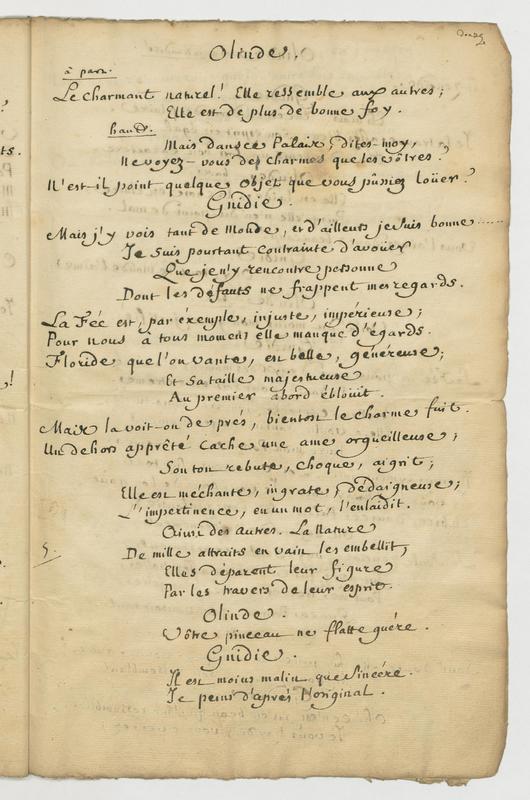 Olinde.
à part.
Le charmant naturel! Elle ressemble aux autres;
Elle est de plus de bonne foy.
haut.
Mais dans ce Palais, dites-moy,
Ne voyez-vous des charmes que les vôtres?
N'est-il point quelque objet que vous pûssiez loüer?
Gnidie.
Mais j'y vois tant de Monde, et d'ailleurs je suis bonne......
Je suis pourtant contrainte d'avoüer
Que je n'y rencontre personne
Dont les défauts ne frappent mes regards.
La Fée est, par éxemple, injuste, impérieuse;
Pour nous à tous momens elle manque d'égards.
Floride que l'on vante, est belle, généreuse;
Et sa taille majestueuse
Au premier abord éblouit.
Mais la voit-on de prés, bientost le charme fuit.
Un dehors apprêté cache une ame orgueilleuse;
Son ton rebute, choque, aigrit;
Elle est méchante, ingrate, dédaigneuse;
L'impertinence, en un mot, l'enlaidit.
Ainsi des autres. La Nature
5.
De mille attraits en vain les embellit,
Elles déparent leur figure
Par les travers de leur esprit.
Olinde.
Vôtre pinceau ne flatte guére.
Gnidie.
Il est moins malin que sincére.
Je peins d'aprés l'original.
ts.
!